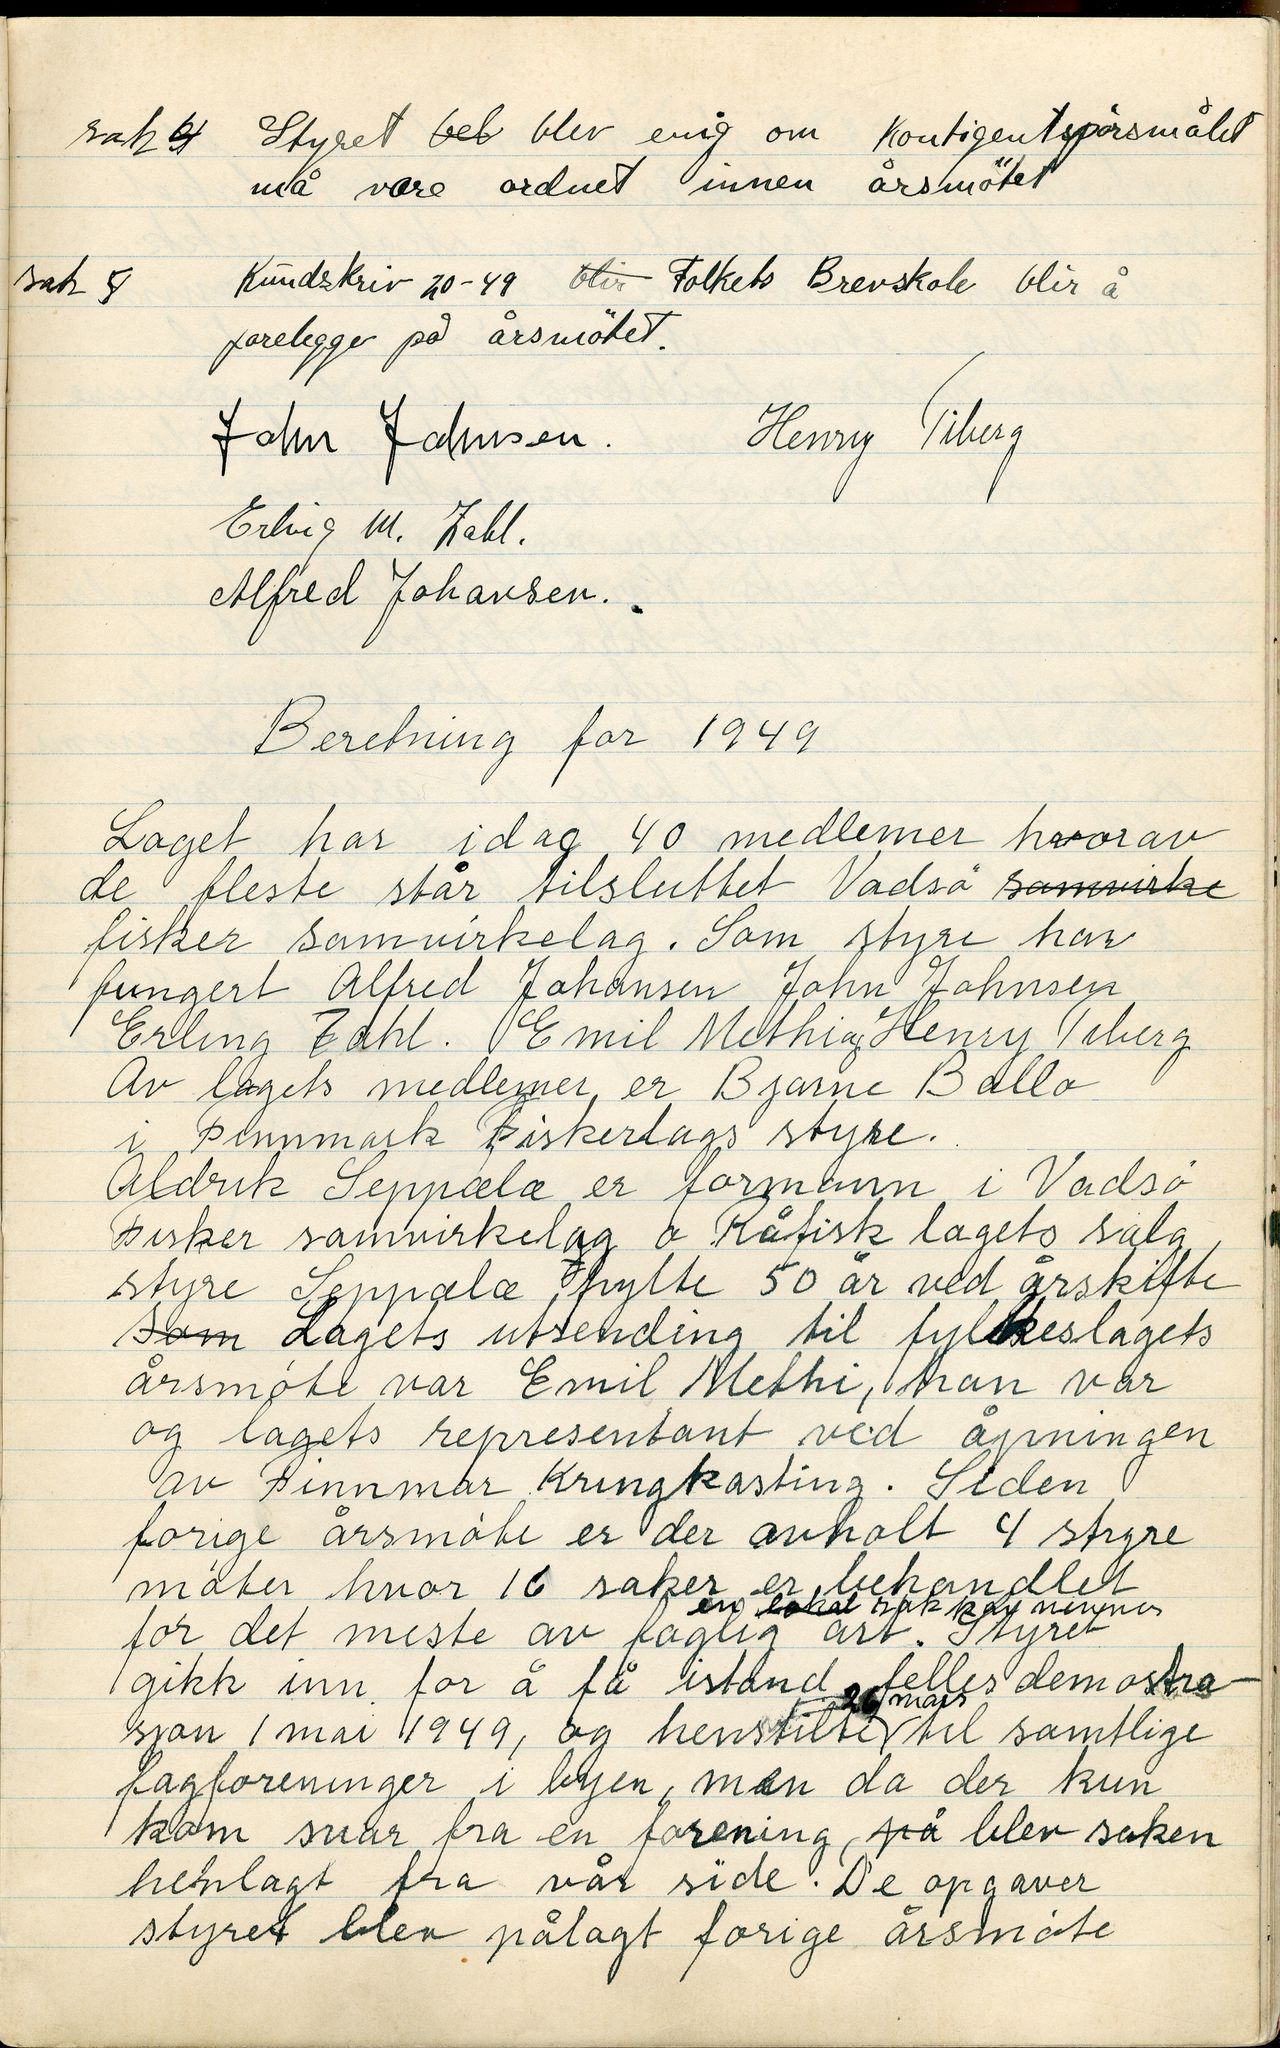 sak 4 Styret bel blev enig om Kontigentspörsmålet
må være ordnet innen årsmötet
sak 5 Rundskriv 20-49 blir Folkets Brevskole blir å
forelegge på årsmötet.
John Johnsen. Henry Tiberg
Erling M. Zahl.
Alfred Johansen.
Beretning for 1949
Laget har idag 40 medlemer hvorav
de fleste står tilsluttet Vadsö samvirke
fisker samvirkelag. Som styre har
fungert Alfred Johansen John Johnsen
Erling Zahl. Emil Methi og Henry Tiberg
Av lagets medlemer er Bjarne Ballo
i Finnmark Fiskerlags styre.
Aldrik Seppælæ er formann i Vadsö
Fisker samvirkelag o Råfisk lagets salg
styre Seppælæ fylte 50 år ved årskifte
Som Lagets utsending til fylkeslagets
årsmöte var Emil Methi, han var
og lagets representant ved åpningen
av Finnmar Kringkasting. Siden
forige årsmöte er der avholt 4 styre
möter hvor 16 saker er behandlet
en lokal sak kan nevnes
for det meste av faglig art. Styret
gikk inn for å få istand felles demostra-
26 mars
sjon 1 mai 1949, og henstilte til samtlige
fagforeninger i byen, men da der kun
kom svar fra en forening, på blev saken
henlagt fra vår side. De opgaver
styret blev pålagt forige årsmöte